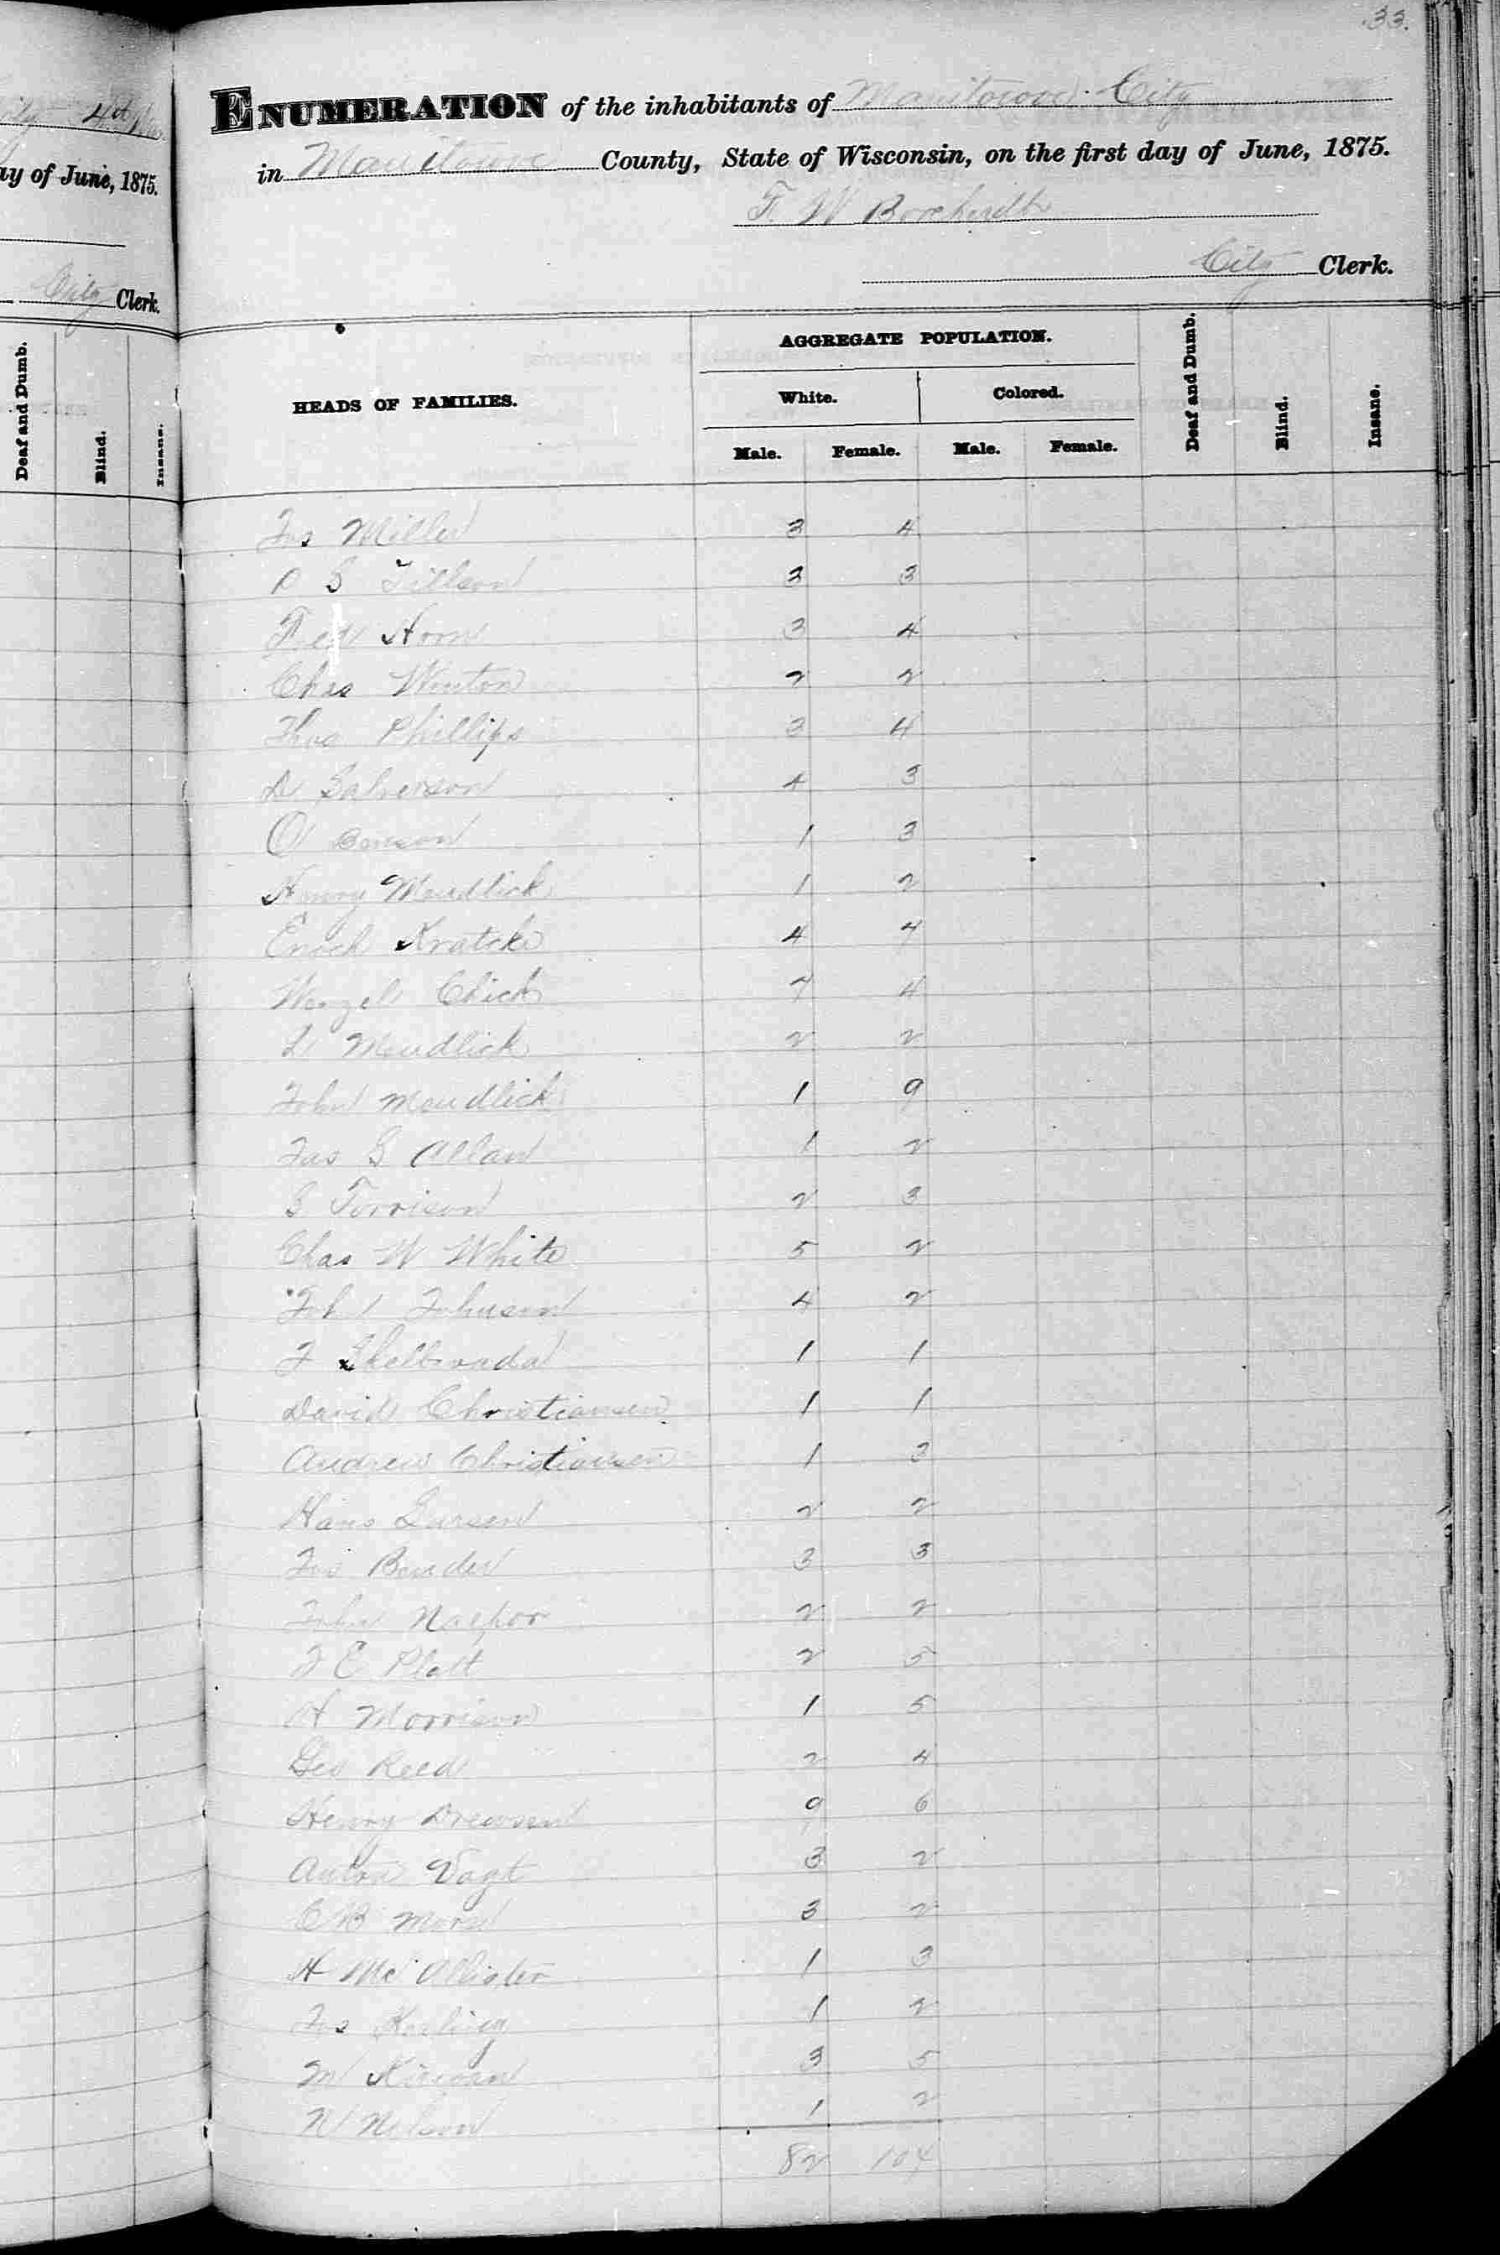 33.
ENUMERATION of the inhabitants of Manitowoc City
in Manitowoc County, State of Wisconsin, on the first day of June, 1875.
F. W Borcherdt
City Clerk.
HEADS OF FAMILIES.
AGGREGATE POPULATION.
White. Colored.
Male. Female. Male. Female. Deaf and Dumb. Blind. Insane.
Jos Miller 3 4
S Tillson 3 3
Fred Horn 3 4
Chas Winton 2 2
Thos Phillips 3 4
4 3
O Benson 1 3
Henry Mendlick 1 2
Enoch Kratche 4 7
Wenzel Chick 7 4
L Mendlick 2 2
John Mendlick 1 9
Jas S Allan 1 2
Torrison 2 3
Chas W White 5 2
John Johnson 4 2
1 1
David Christiansen 1 1
Andrew Christiansen 1 3
Hans Larsen 2 2
Jos Bender 3 3
John 2 2
J E Platt 2 5
H Morrison 1 5
Geo Reed 2 4
Henry Drewsen 9 6
Anton Vogt 3 2
C B Morse 3 2
H McAllister 1 3
Jos 1 2
M Kirwan 3 5
N Nelson 1 2
82 104
ity 4th
ay of June, 1875.
City Clerk.
Deaf and Dumb. Blind. Insane.